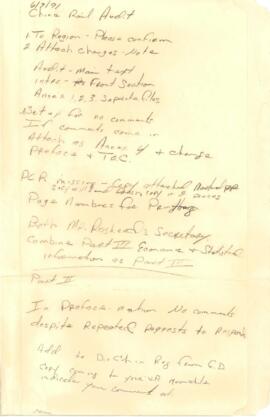 6/7/91
China Rail Audit
1 To Region - Please confirm
2 Attach Changes - Note
Audit - main text
Intro - Front Section
Annex 1, 2, 3 Separate files
Set up for no comments
If comments come in
Attach as Annex 4 & change
Preface & TOC.
PCR missing - Copy attached
Page Numbers for
Both Mr. Secretary
Combine Part III Economic & Statistical
information as Part III
Part II
In Preface - mention No comments
despite Repeated Requests to
Add to Div Chin Reg from CD
Copy coming to you via
indicate your comment at